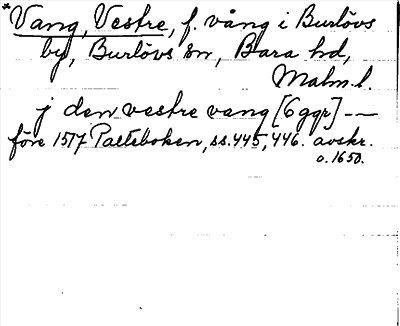 *Vang, Vestre, f. vång i Burlövs
by, Burlövs sn, Bara hd,
Malm. l.
j den vestre vang [6 ggr] —
före 1517 Palteboken, ss. 445, 446. avskr.
o. 1650.